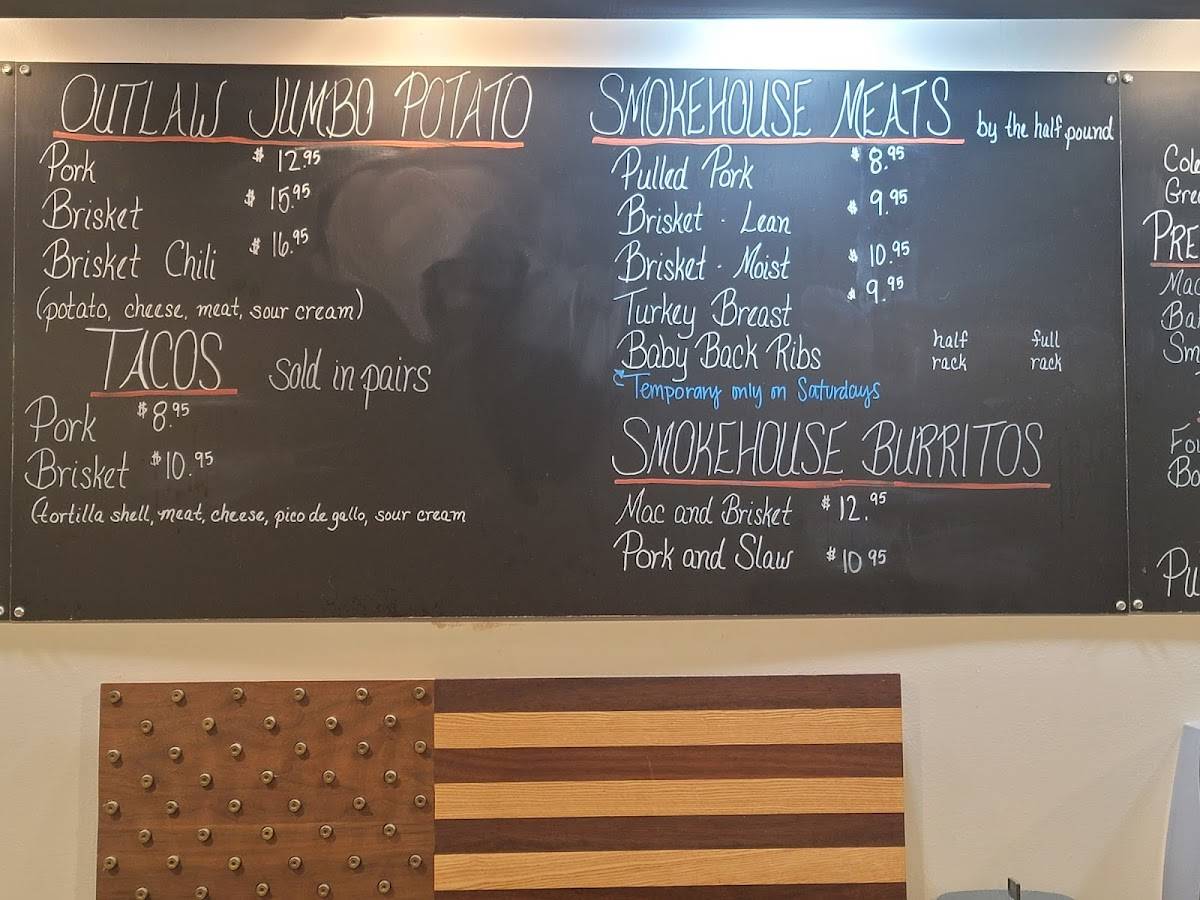 OUTLAW JUMBO POTATO
Pork $ 12.95
Brisket $ 15.95
Brisket Chili $ 16.95
(potato, cheese, meat, sour cream)
TACOS sold in pairs
Pork $8.95
Brisket $10.95
(tortilla shell, meat, cheese, pico de gallo, sour cream
SMOKEHOUSE MEATS by the half pound
Pulled Pork $ 8.95
Brisket - Lean $ 9.95
Brisket - Moist $ 10.95
Turkey Breast $ 9.95
Baby Back Ribs half rack full rack
Temporary only on Saturdays
SMOKEHOUSE BURRITOS
Mac and Brisket $12.95
Pork and Slaw $10.95